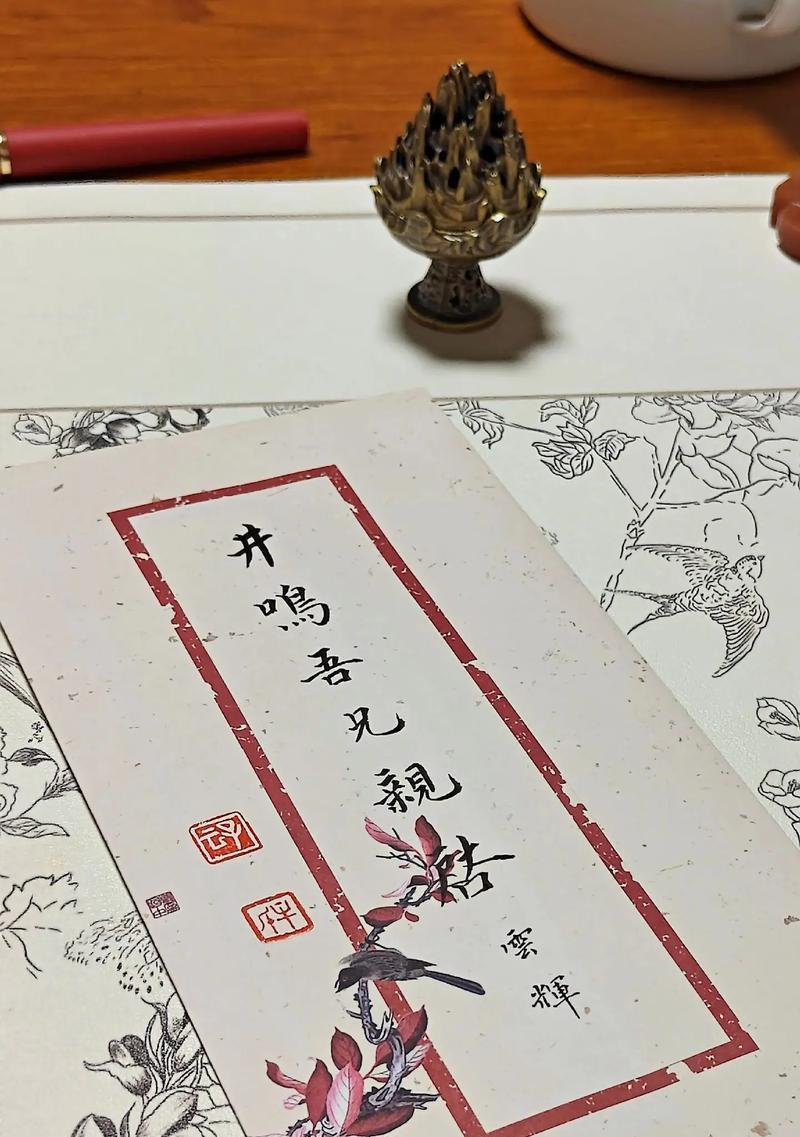 井鳴吾兄親啓
雲輝